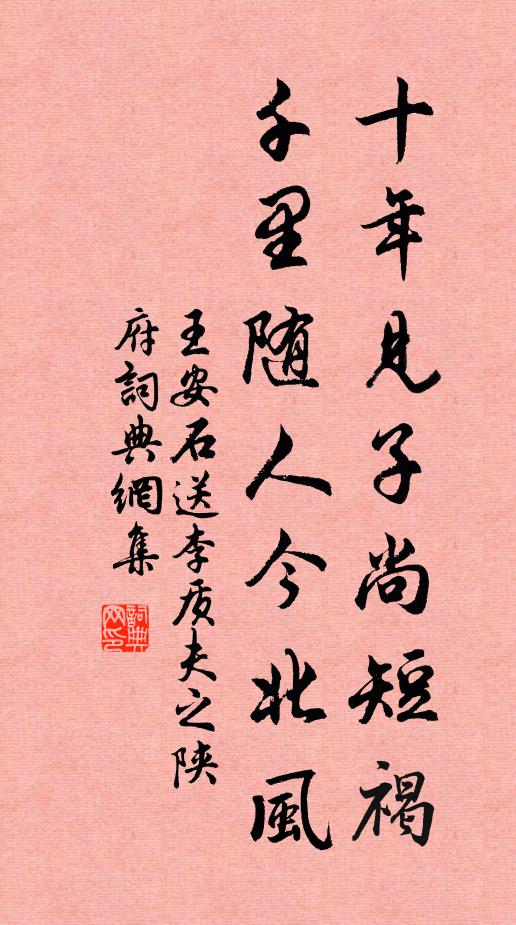 十年見子尚短褐
千里随人今北風
王安石送李质夫之陕
府詞典網集
詞典網印